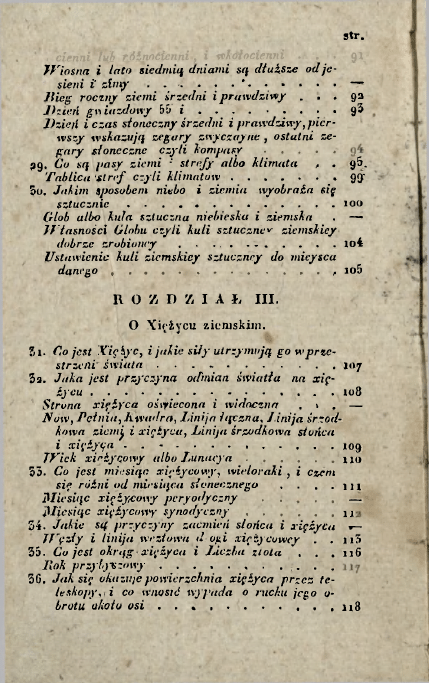 str.
cienni lub różnocienni, i wkołocienni 91
Wiosna i lato siedmią dniami są dłuższe od je-
sieni i zimy . . . . . . . . . —
Bieg roczny ziemi śrzedni i prawdziwy . . . 92
Dzień gwiazdowy 55 i . . . . . . . 93
Dzień i czas słoneczny śrzedni i prawdziwy, pier-
wszy wskazują zegary zwyczayne, ostatni ze-
gary słoneczne czyli kompasy . . . . 94
29. Co są pasy ziemi: strefy albo klimata . . 95
Tablica stref czyli klimatow . . . . . . 99
30. Jakim sposobem niebo i ziemia wyobraża się
sztucznie . . . . . . . . . . 100
Glob albo kula sztuczna niebieska i ziemska . —
Własności Globu czyli kuli sztuczney ziemskiey
dobrze zrobioney . . . . . . . . 104
Ustawienie kuli ziemskiey sztuczney do mieysca
danego . . . . . . . . . . . 105
ROZDZIAŁ III.
O Xiężycu ziemskim.
31. Co jest Xiężyc, i jakie siły utrzymują go w prze-
strzeni świata . . . . . . . . . 107
32. Jaka jest przyczyna odmian światła na xię-
życu . . . . . . . . . . . . 108
Strona xiężyca oświecona i widoczna . . . —
Now, Pełnia, Kwadra, Linija łączna, Linija śrzod-
kowa ziemi i xiężyca, Linija śrzodkowa słońca
i xiężyca . . . . . . . . . . 109
Wiek xiężycowy albo Lunacya . . . . . 110
33. Co jest miesiąc xiężycowy, wieloraki, i czem
się różni od miesiąca słonecznego . . . . 111
Miesiąc xiężycowy peryodyczny . . . . —
Miesiąc xiężycowy synodyczny . . . . . 112
34. Jakie są przyczyny zaćmień słońca i xiężyca —
Węzły i linija węzłowa drogi xiężycowey . . 115
35. Co jest okrąg xiężyca i Liczba złota . . . 116
Rok przybyszowy . . . . . . . . . 117
36. Jak się okazuje powierzchnia xiężyca przez te-
leskopy, i co wnosić wypada o ruchu jego o-
brotu około osi . . . . . . . . . 118